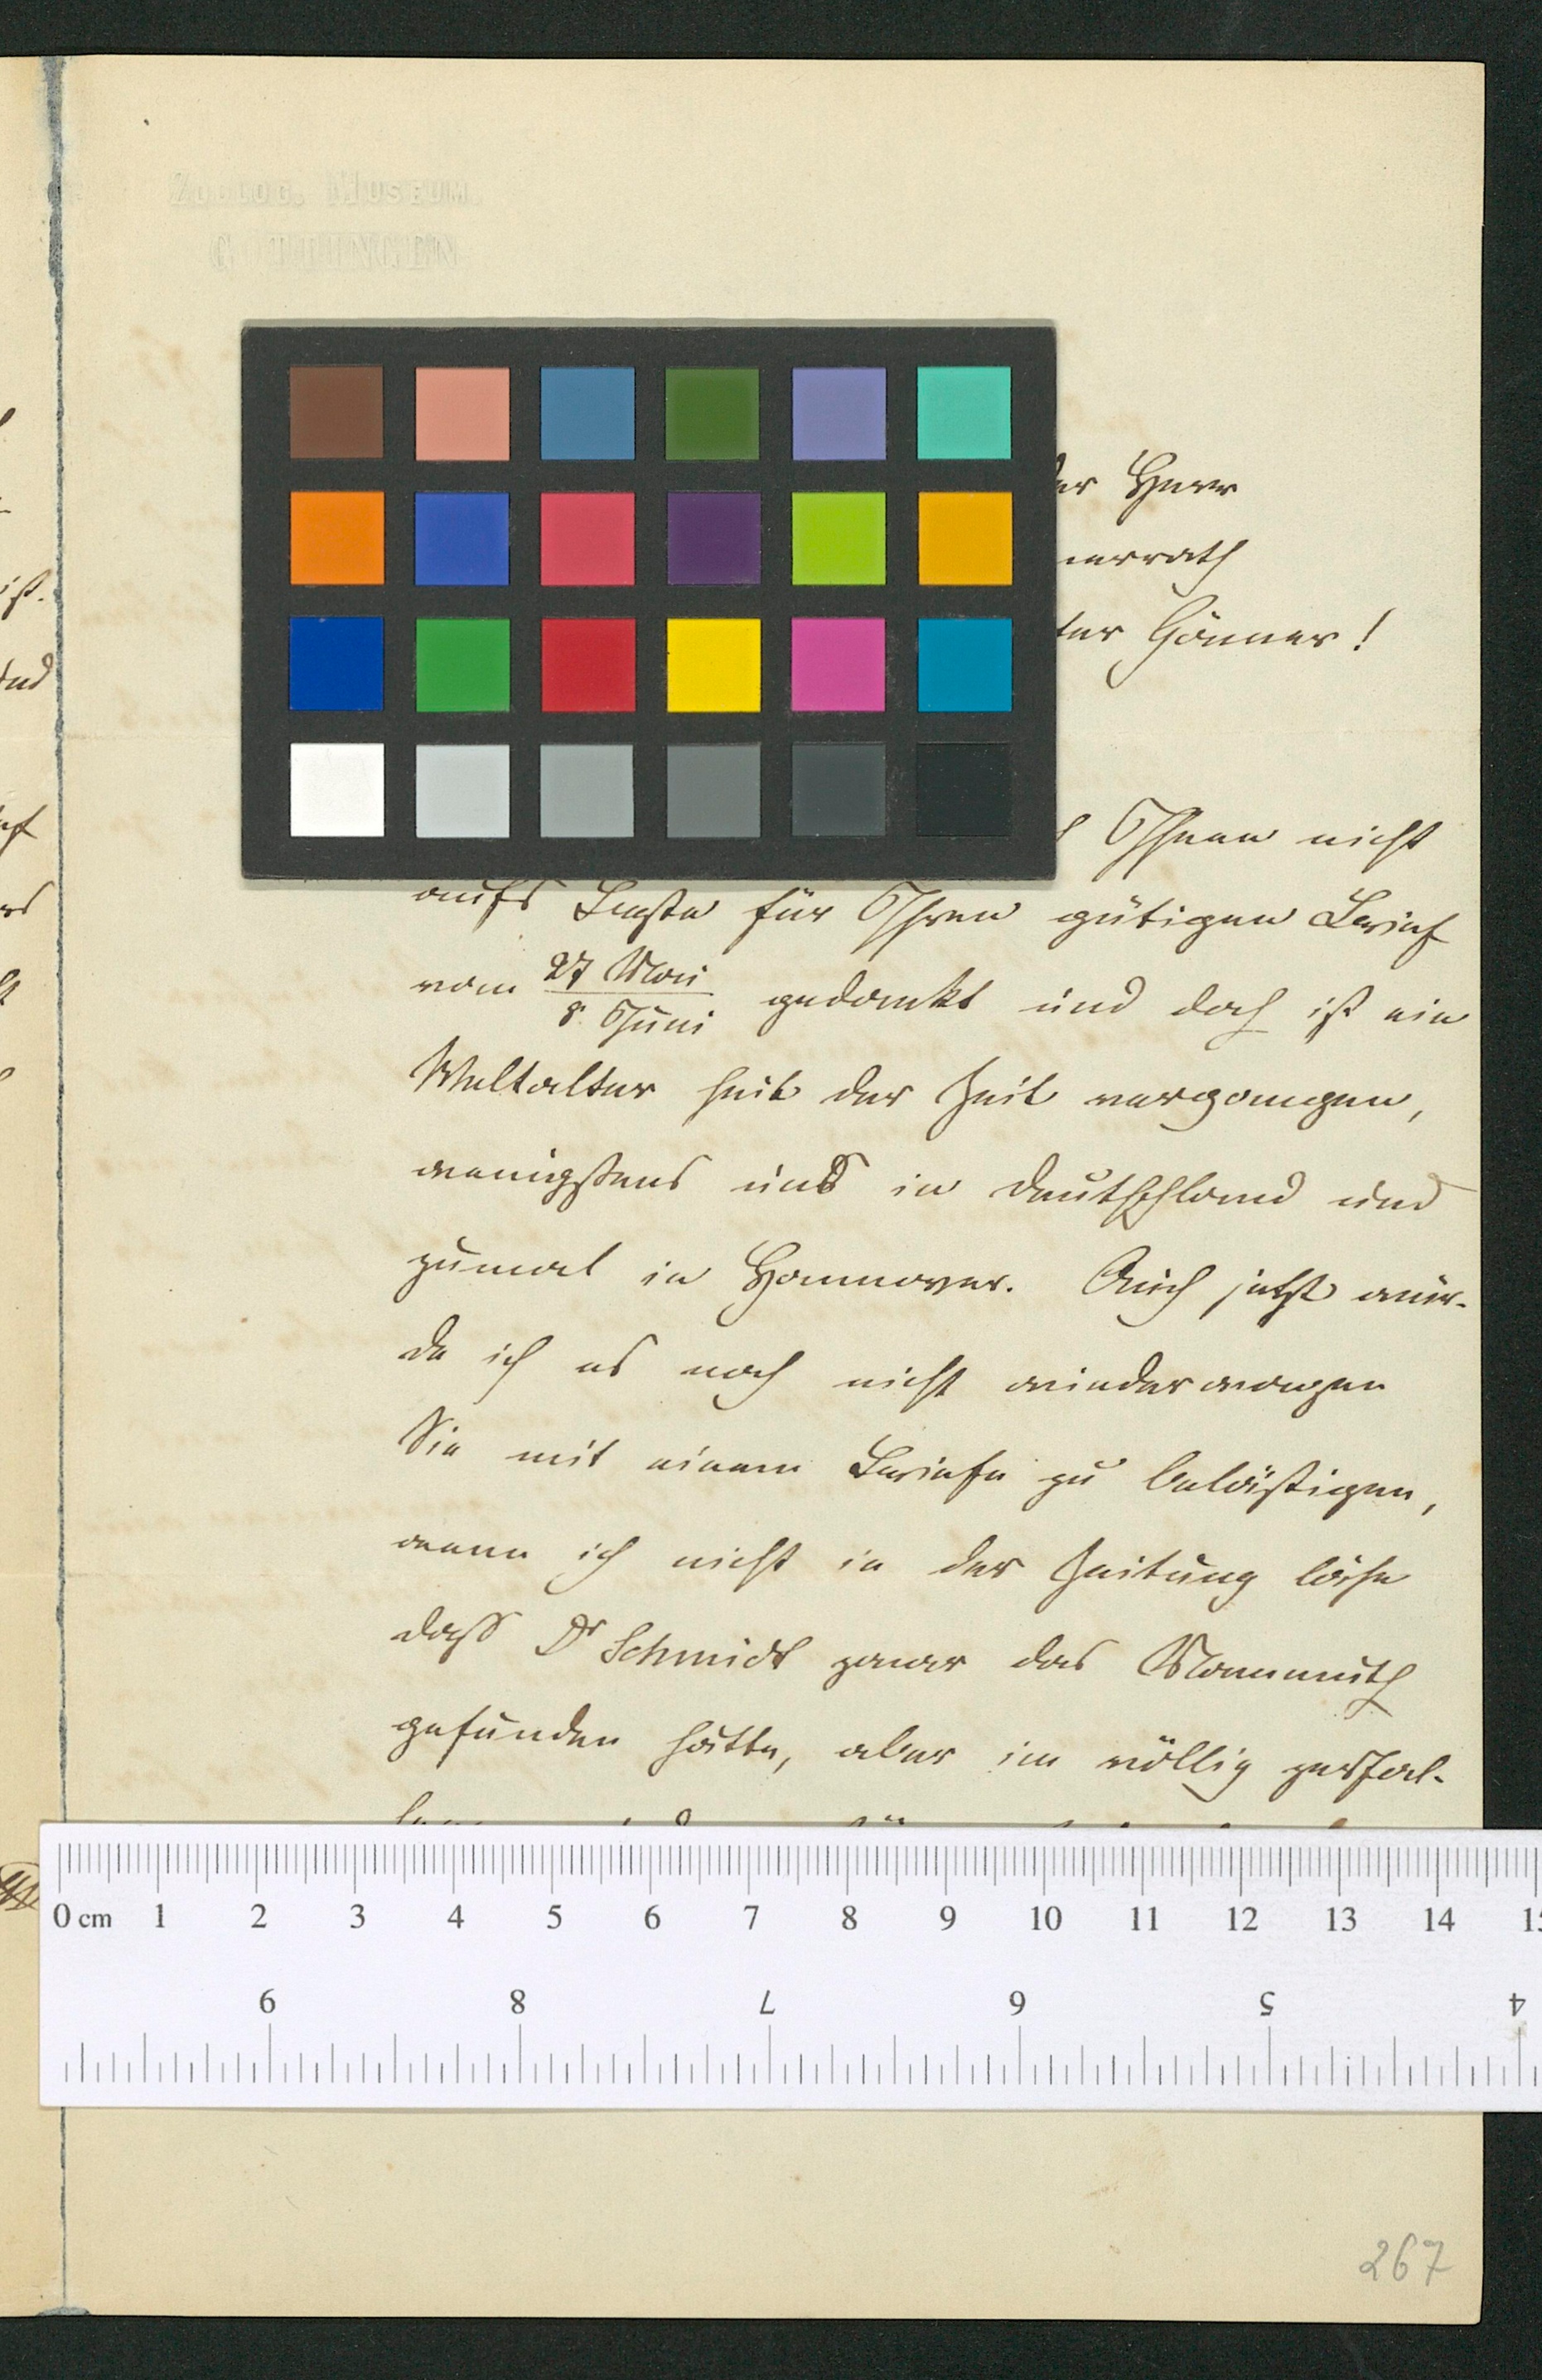 ZOOLOG. MUSEUM.
GÖTTINGEN
Herr
Gönner!
Ihnen nicht
aufs Beste für Ihren gütigen Brief
vom 27 Mai / 8. Juni gedankt und doch ist ein
Weltalter seit der Zeit vergangen,
wenigstens uns in Deutschland und
zumal in Hannover. Auch jetzt wür-
de ich es noch nicht wieder wagen
Sie mit einem Briefe zu belästigen,
wenn ich nicht in der Zeitung läse
dass Dr Schmidt zwar das Mammuth
gefunden hätte, aber im völlig zerfal-
0 cm 1 2 3 4 5 6 7 8 9 10 11 12 13 14
9 8 7 6 5 4
267